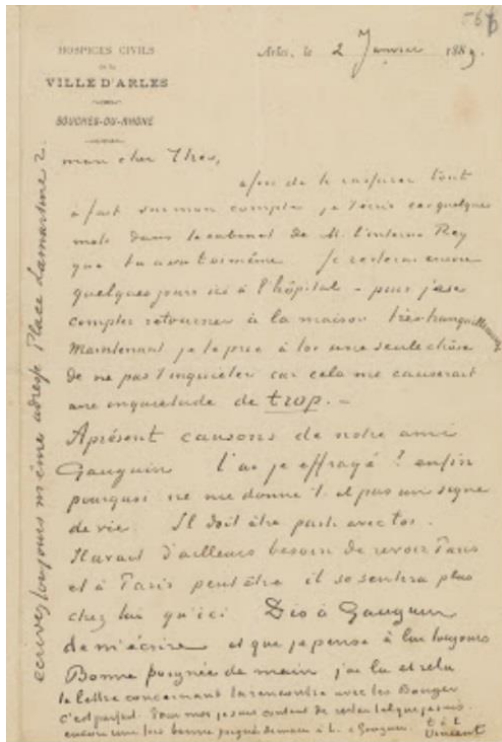 567
HOSPICES CIVILS
de la
VILLE D'ARLES
BOUCHES-DU-RHÔNE
Arles, le 2 Janvier 1889
mon cher Theo,
afin de te rassurer tout
à fait sur mon compte je t'écris ces quelques
mots dans le cabinet de M. l'interne Rey
que tu as vu toi même. Je resterai encore
quelques jours ici à l'hôpital – puis j'ose
compter retourner à la maison très tranquillement
Maintenant je te prie à toi une seule chose
de ne pas t'inquieter car cela me causerait
une inquietude de trop. –
Aprésent causons de notre ami
Gauguin l'ai je effrayé? enfin
pourquoi ne me donne t'il pas un signe
de vie. Il doit être parti avec toi.
Il avait d'ailleurs besoin de revoir Paris
et à Paris peut être il se sentira plus
chez lui qu'ici. Dis à Gauguin
de m'écrire et que je pense à lui toujours
Bonne poignée de main j'ai lu et relu
ta lettre concernant la rencontre avec les Bonger
c'est parfait. Pour moi je suis content de rester tel que je suis.
encore une fois bonne poignée de main à t. à Gauguin.
t. à t.
Vincent
ecrivez toujours même adresse Place Lamartine 2.